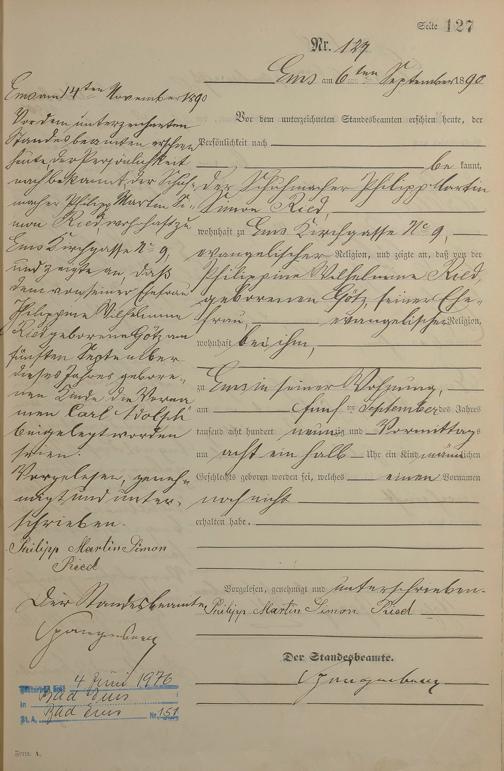 Seite 127
Nr. 127
Ems am 6ten September 1890
Vor dem unterzeichneten Standesbeamten erschien heute, der
Persönlichkeit nach
be kannt,
der Schuhmacher Philipp Martin
Simon Ried,
wohnhaft zu Ems Kirchgasse No 9,
evangelischer Religion, und zeigte an, daß von der
Philippine Wilhelmine Ried,
geborenen Götz, seiner Ehe-
frau, evangelischer Religion,
wohnhaft bei ihm,
zu Ems in seiner Wohnung,
am fünf ten September des Jahres
tausend acht hundert neunzig und Vormittags
um acht ein halb Uhr ein Kind männlichen
Geschlechts geboren worden sei, welches einen Vornamen
noch nicht
erhalten habe.
Vorgelesen, genehmigt und unterschrieben.
Philipp Martin Simon Ried
Der Standesbeamte.
Spangenberg
Ems am 14ten November 1890
Vor dem unterzeichneten
Standesbeamten erschien
heute, der Persönlichkeit
nach bekannt, der Schuh-
macher Philipp Martin Si-
mon Ried wohnhaft zu
Ems Kirchgasse No 9,
und zeigte an, daß
dem von seiner Ehefrau
Philippine Wilhelmine
Ried geborene Götz am
fünften September
dieses Jahres gebore-
nen Kinde die Vorna-
men Carl Adolph
beigelegt worden
seien.
Vorgelesen, geneh-
migt und unter-
schrieben.
Philipp Martin Simon
Ried
Der Standesbeamte
Spangenberg
4. Juni 1976
in Bad Ems
St. A. Bad Ems Nr. 151
Form. A.